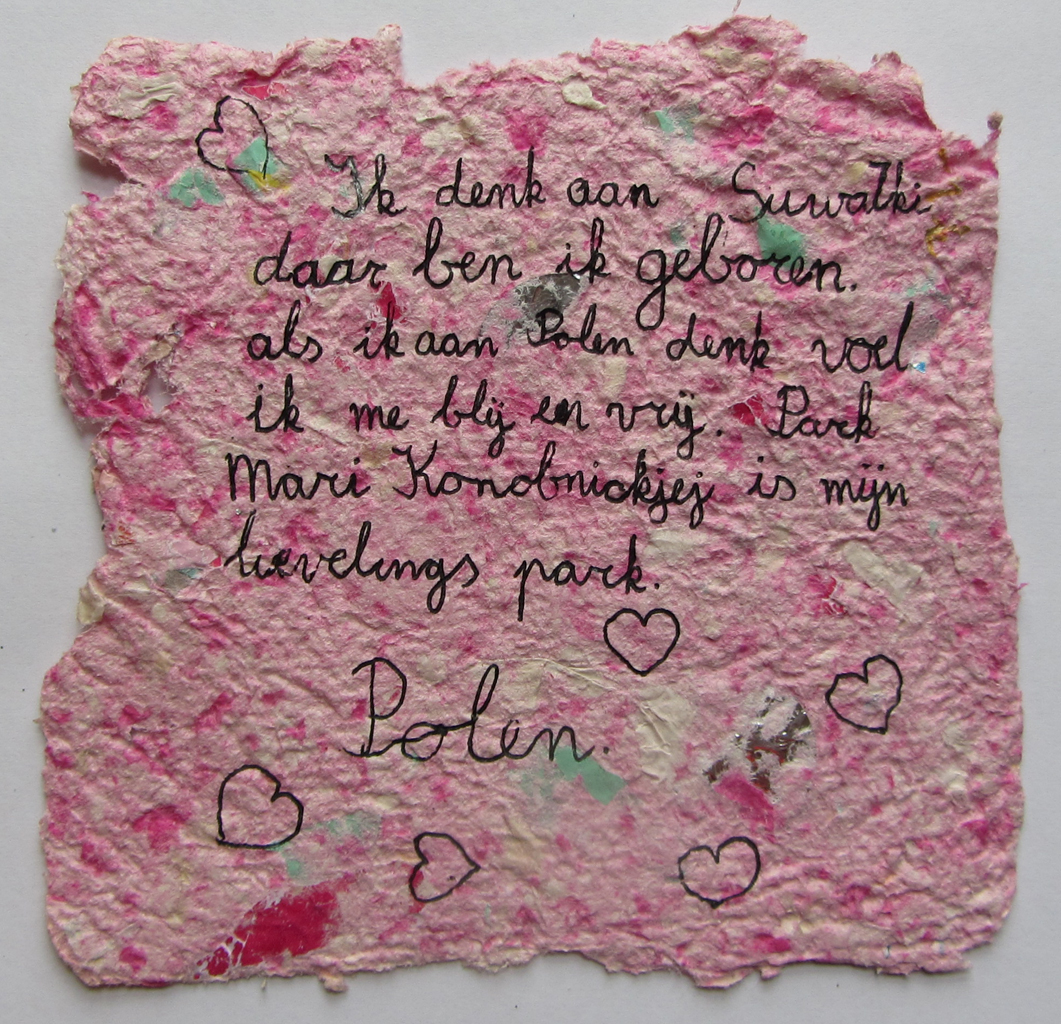 Ik denk aan Suwałki
daar ben ik geboren.
als ik aan Polen denk voel
ik me blij en vrij. Park
Mari Konobnickjej is mijn
lievelings park.
Polen.